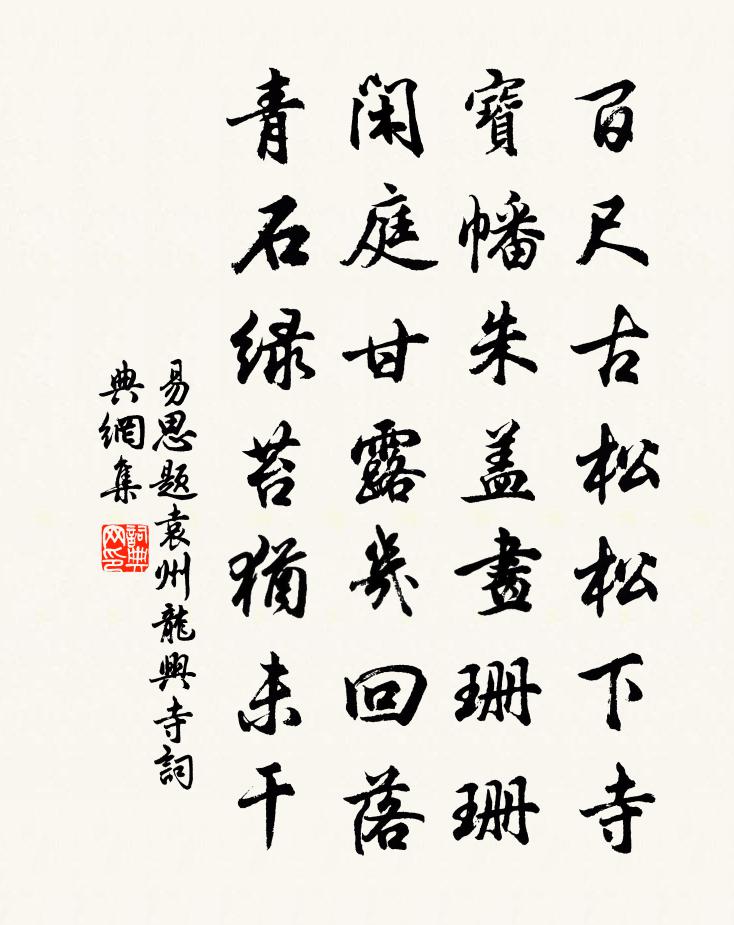 百尺古松松下寺
寶幡朱盖畫珊珊
閑庭甘露幾回落
青石绿苔猶未干
易思題袁州龍興寺詞
典網集
詞典
网印